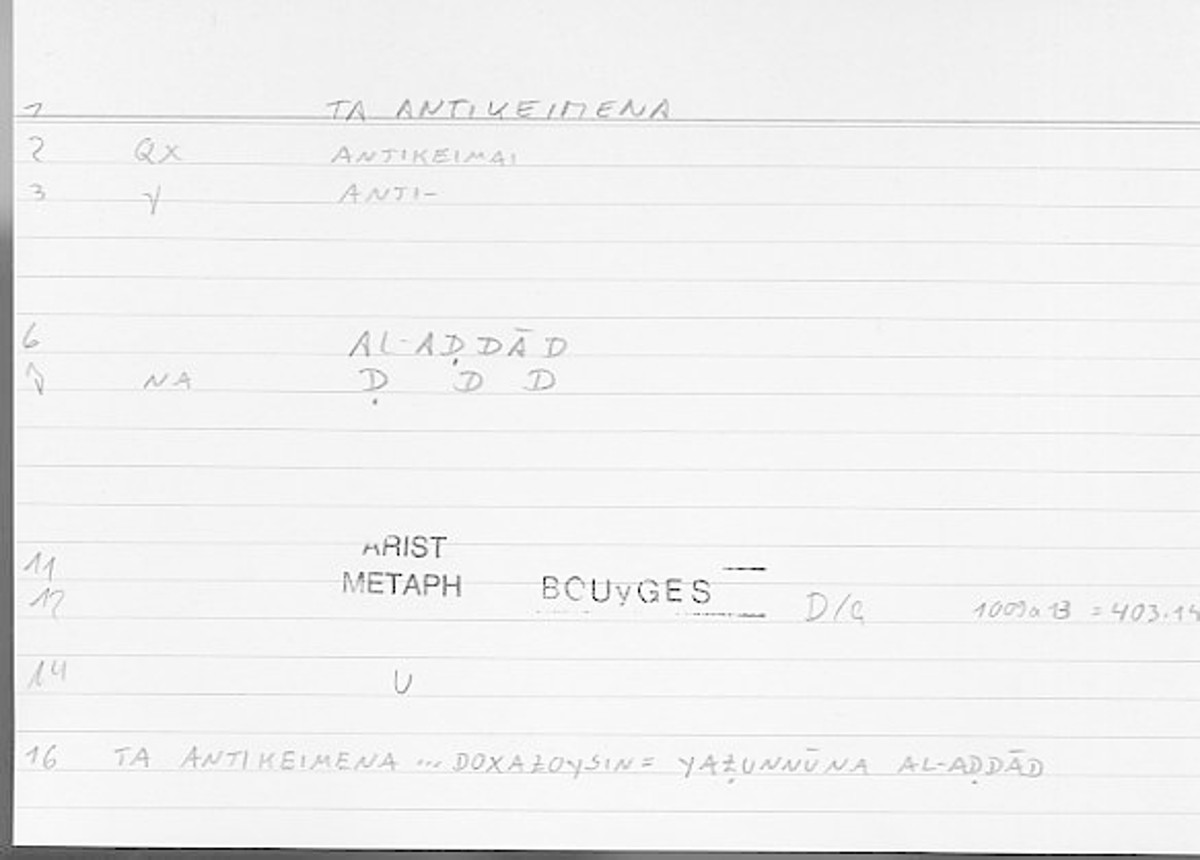 1 TA ANTIKEIMENA
2 QX ANTIKEIMAI
3 γ ANTI-
6 AL-AḌDĀD
NA Ḍ D D
11 ARIST
METAPH BOUyGES
12 D/G 1009a13 = 403.14
14 U
16 TA ANTIKEIMENA ... DOXAZOySIN = yAẒUNNŪNA AL-AḌDĀD